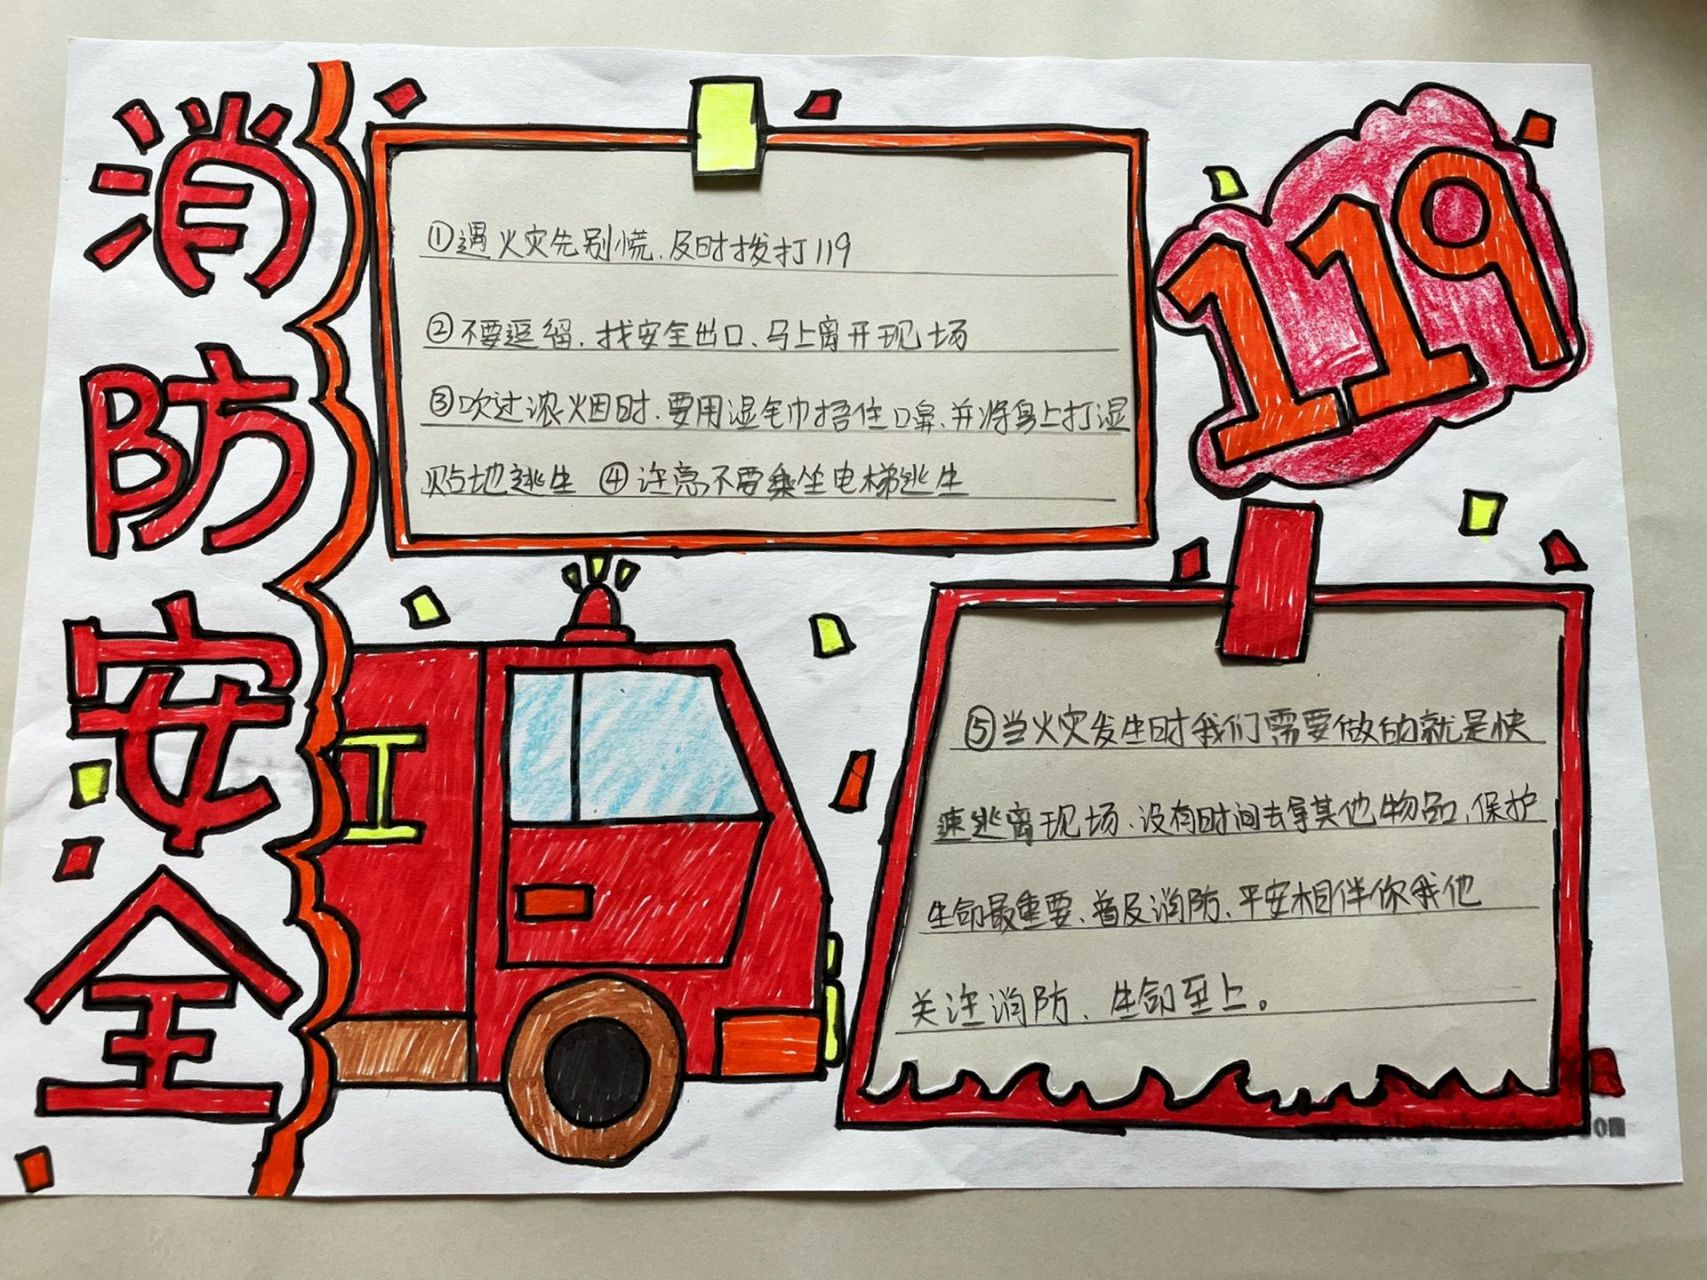 消防安全
①遇火灾先别慌、及时拨打119
②不要逗留、找安全出口、马上离开现场
③吹过浓烟时、要用湿毛巾捂住口鼻、并将身上打湿
贴地逃生 ④注意不要乘坐电梯逃生
119
⑤当火灾发生时我们需要做的就是快
速逃离现场、没有时间去拿其他物品、保护
生命最重要、普及消防、平安相伴你我他
关注消防、生命至上。